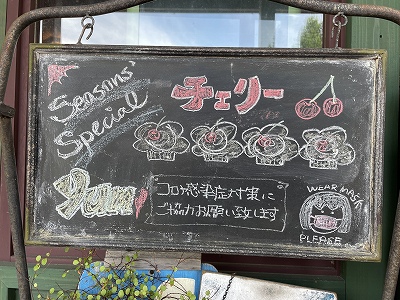 Seasons'
Special
チェリー
Yum
コロナ感染症対策に
ご協力お願い致します
WEAR MASK
PLEASE